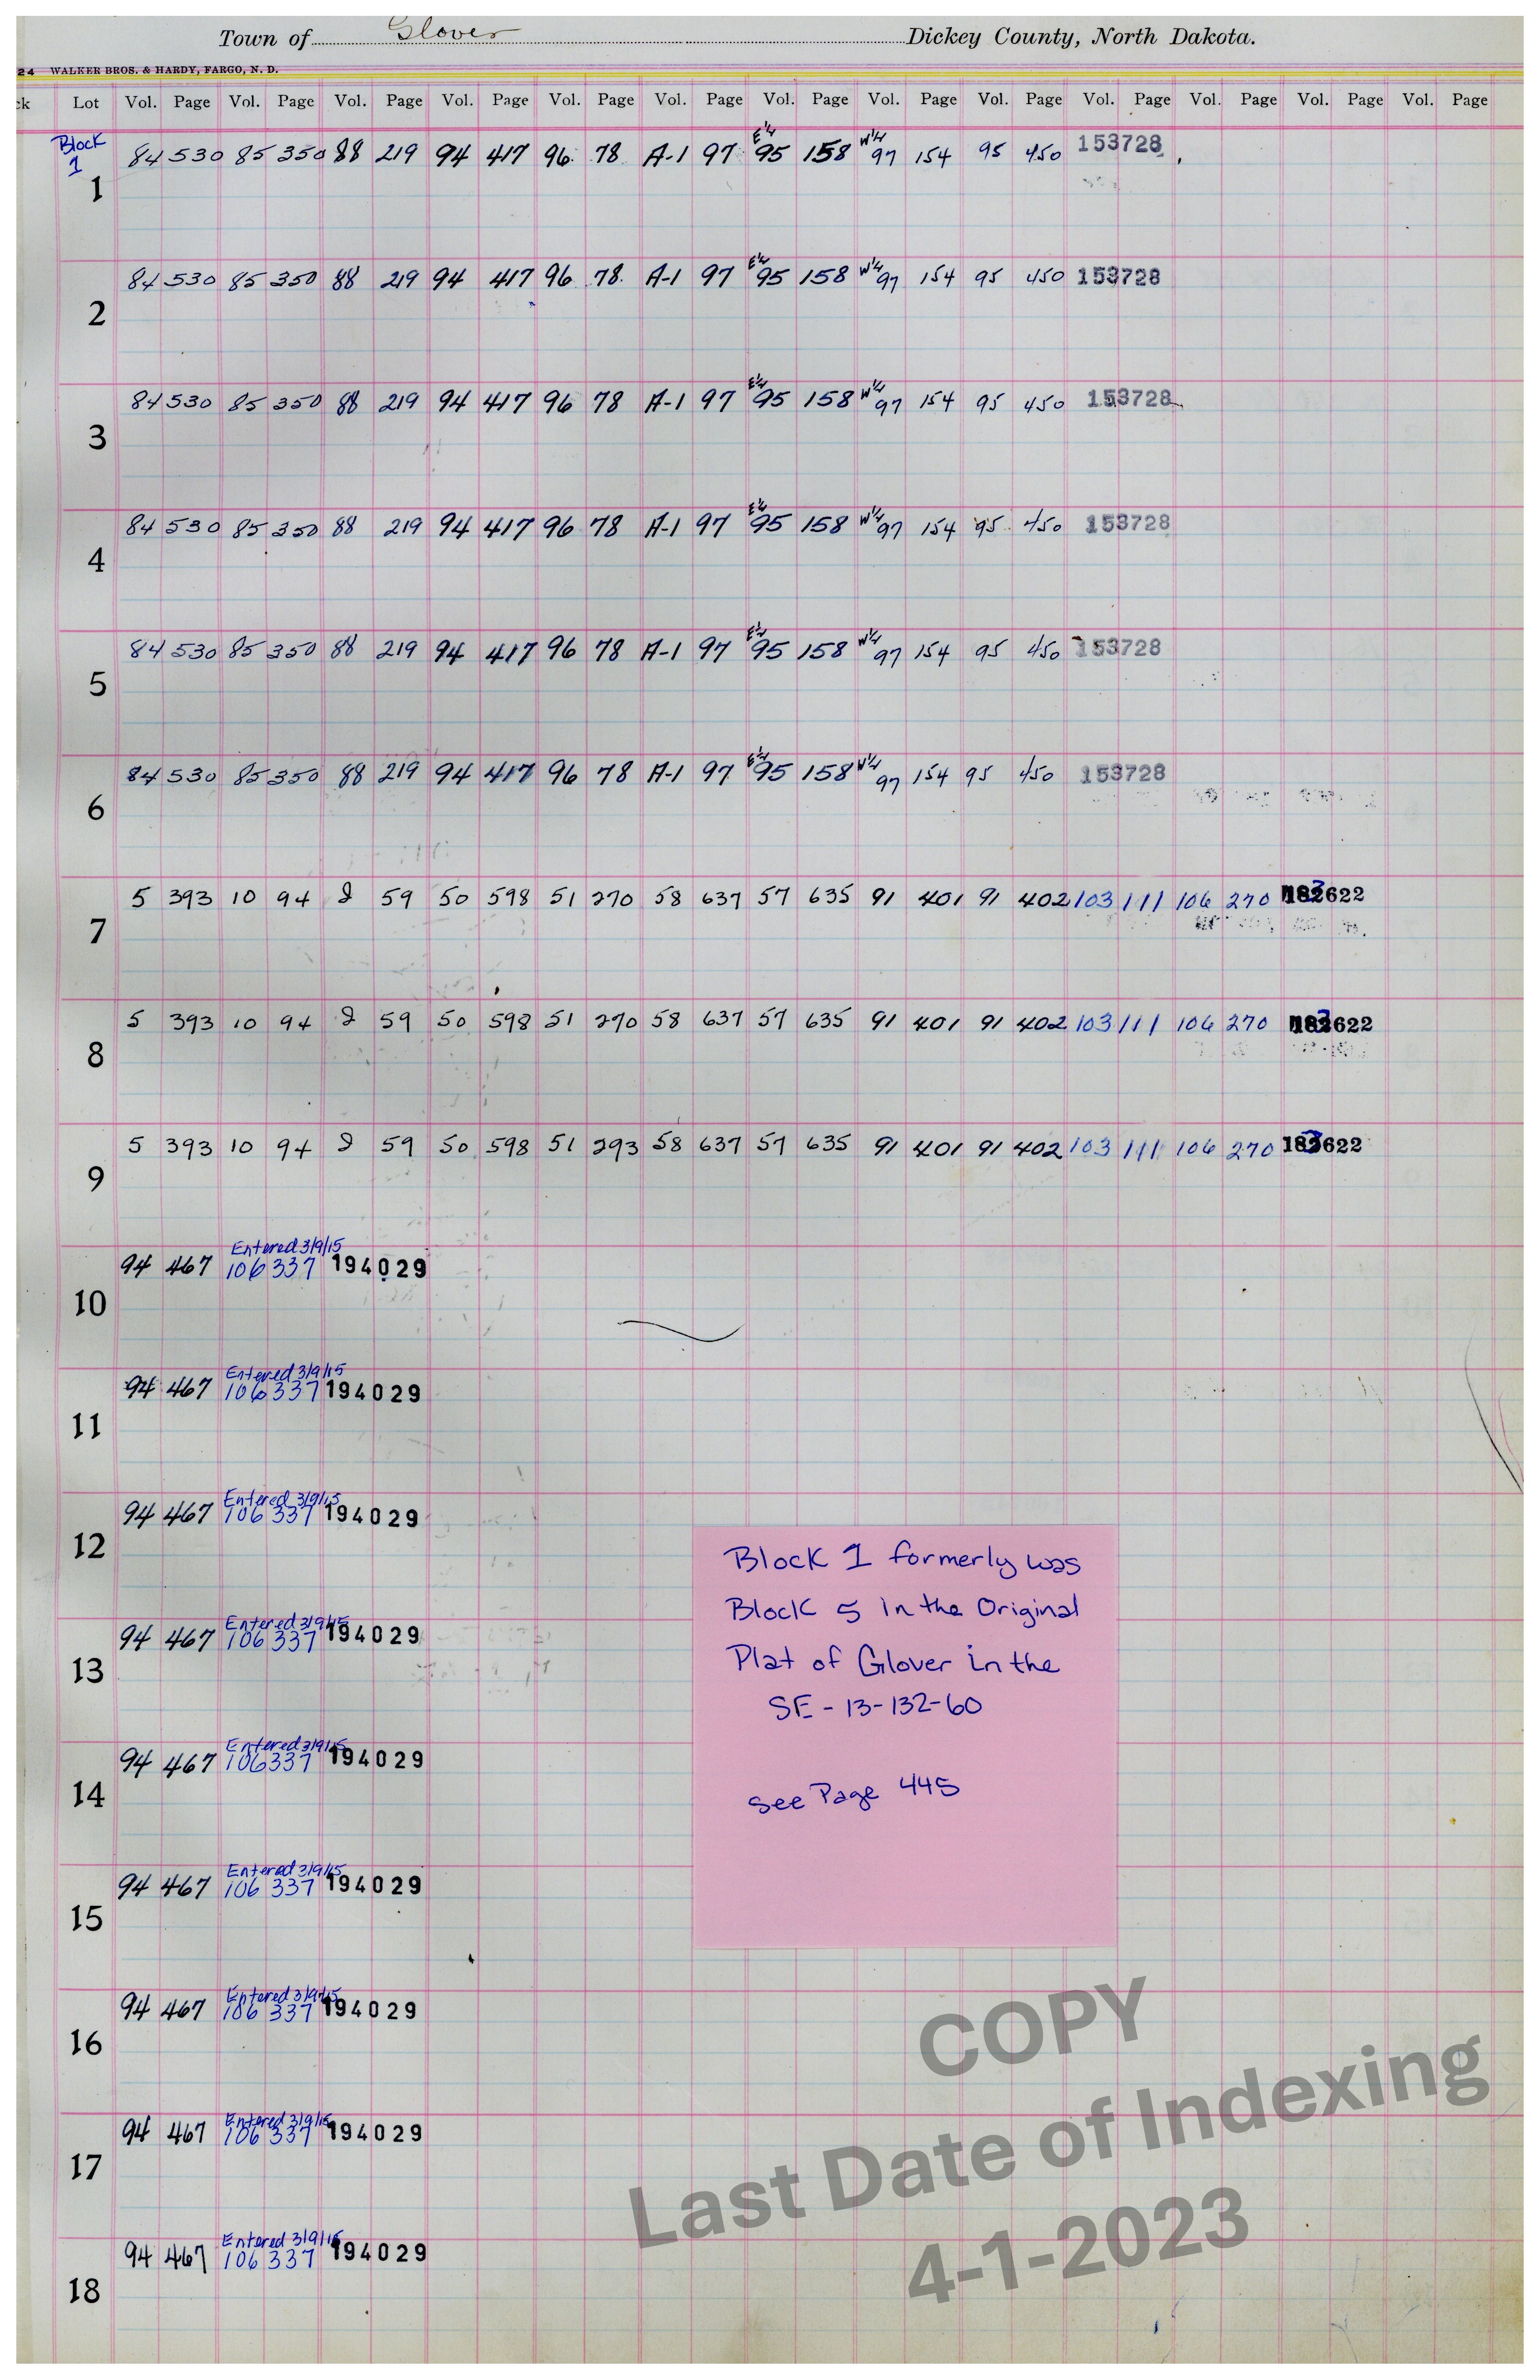 Town of Glover Dickey County, North Dakota.
24 WALKER BROS. & HARDY, FARGO, N. D.
ck Lot Vol. Page Vol. Page Vol. Page Vol. Page Vol. Page Vol. Page Vol. Page Vol. Page Vol. Page Vol. Page Vol. Page Vol. Page Vol. Page
Block
1
E½ W½
84 530 85 350 88 219 94 417 96 78 A-1 97 95 158 97 154 95 450 153728
1
E½ W½
84 530 85 350 88 219 94 417 96 78 A-1 97 95 158 97 154 95 450 153728
2
E½ W½
84 530 85 350 88 219 94 417 96 78 A-1 97 95 158 97 154 95 450 153728
3
E½ W½
84 530 85 350 88 219 94 417 96 78 A-1 97 95 158 97 154 95 450 153728
4
E½ W½
84 530 85 350 88 219 94 417 96 78 A-1 97 95 158 97 154 95 450 153728
5
E½ W½
84 530 85 350 88 219 94 417 96 78 A-1 97 95 158 97 154 95 450 153728
6
5 393 10 94 2 59 50 598 51 290 58 637 57 635 91 401 91 402 103 111 106 270 183622
7
5 393 10 94 2 59 50 598 51 290 58 637 57 635 91 401 91 402 103 111 106 270 183622
8
5 393 10 94 2 59 50 598 51 293 58 637 57 635 91 401 91 402 103 111 106 270 183622
9
Entered 3/9/15
94 467 106 337 194029
10
Entered 3/9/15
94 467 106 337 194029
11
Entered 3/9/15
94 467 106 337 194029
12
Entered 3/9/15
94 467 106 337 194029
13
Entered 3/9/15
94 467 106 337 194029
14
Entered 3/9/15
94 467 106 337 194029
15
Entered 3/9/15
94 467 106 337 194029
16
Entered 3/9/15
94 467 106 337 194029
17
Entered 3/9/15
94 467 106 337 194029
18
Block 1 formerly was
Block 5 in the Original
Plat of Glover in the
SE - 13-132-60
see Page 445
COPY
Last Date of Indexing
4-1-2023